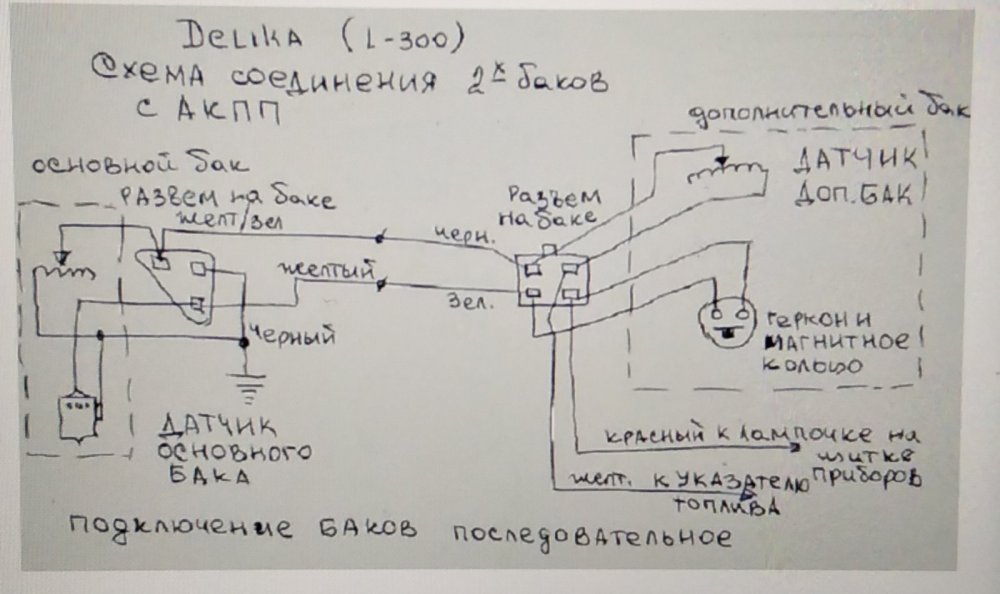 DELIKA (L-300)
СХЕМА СОЕДИНЕНИЯ 2х БАКОВ
С АКПП
ДОПОЛНИТЕЛЬНЫЙ БАК
ОСНОВНОЙ БАК
РАЗВЕМ НА БАКЕ
ЖЕЛТ/ЗЕЛ
РАЗЪЕМ
НА БАКЕ
ДАТЧИК
ДОП. БАК
ЧЕРН.
ЖЕЛТЫЙ
ЗЕЛ.
ЧЕРНЫЙ
ГЕРКОН И
МАГНИТНОЕ
КОЛЬЦО
ДАТЧИК
ОСНОВНОГО
БАКА
КРАСНЫЙ К ЛАМПОЧКЕ НА
ЩИТКЕ
ПРИБОРОВ
ЖЕЛТ. К УКАЗАТЕЛЮ
ТОПЛИВА
ПОДКЛЮЧЕНИЕ БАКОВ ПОСЛЕДОВАТЕЛЬНОЕ